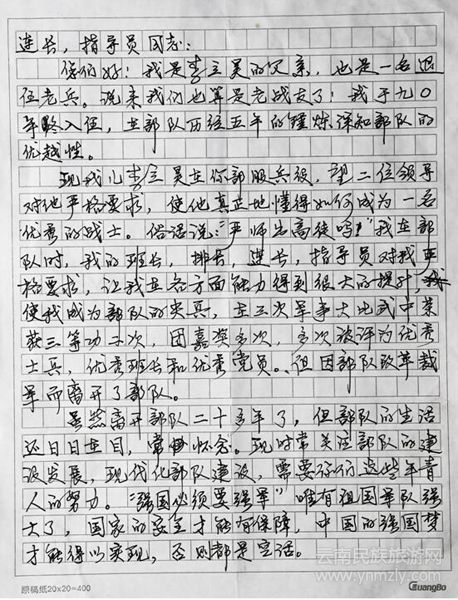 连长，指导员同志：
你们好！我是李立昊的父亲，也是一名退
伍老兵。说来我们也算是老战友了！我于九〇
年龄入伍，在部队历经五年的锤炼深知部队的
优越性。
现我儿李立昊在你部服兵役，望二位领导
对他严格要求，使他真正地懂得如何成为一名
优秀的战士。俗话说："严师出高徒吗"我在部
队时，我的班长，排长，连长，指导员对我严
格要求，让我在各方面能力得到很大的提升，
使我成为部队的尖兵，在三次军事大比武中荣
获三等功二次，团嘉奖多次，多次被评为优秀
士兵，优秀班长和优秀党员。但因部队改革裁
军而离开了部队。
虽然离开部队二十多年了，但部队的生活
还日日在目，常常怀念。现时常关注部队的建
设发展，现代化部队建设，需要你们这些年青
人的努力。"强国必须要强军"唯有祖国军队强
大了，国家的安全才能有保障，中国的强国梦
才能得以实现，否则都是空话。
原稿纸20x20=400
GuangBo
云南民族旅游网
www.ynmzly.com